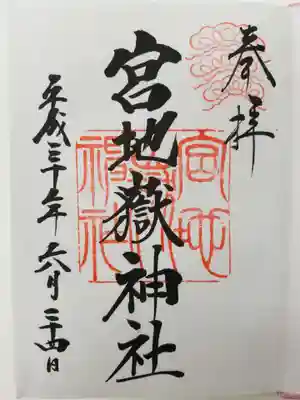 奉拝
宮地嶽神社
平成三十年六月二十四日
宮地嶽神社